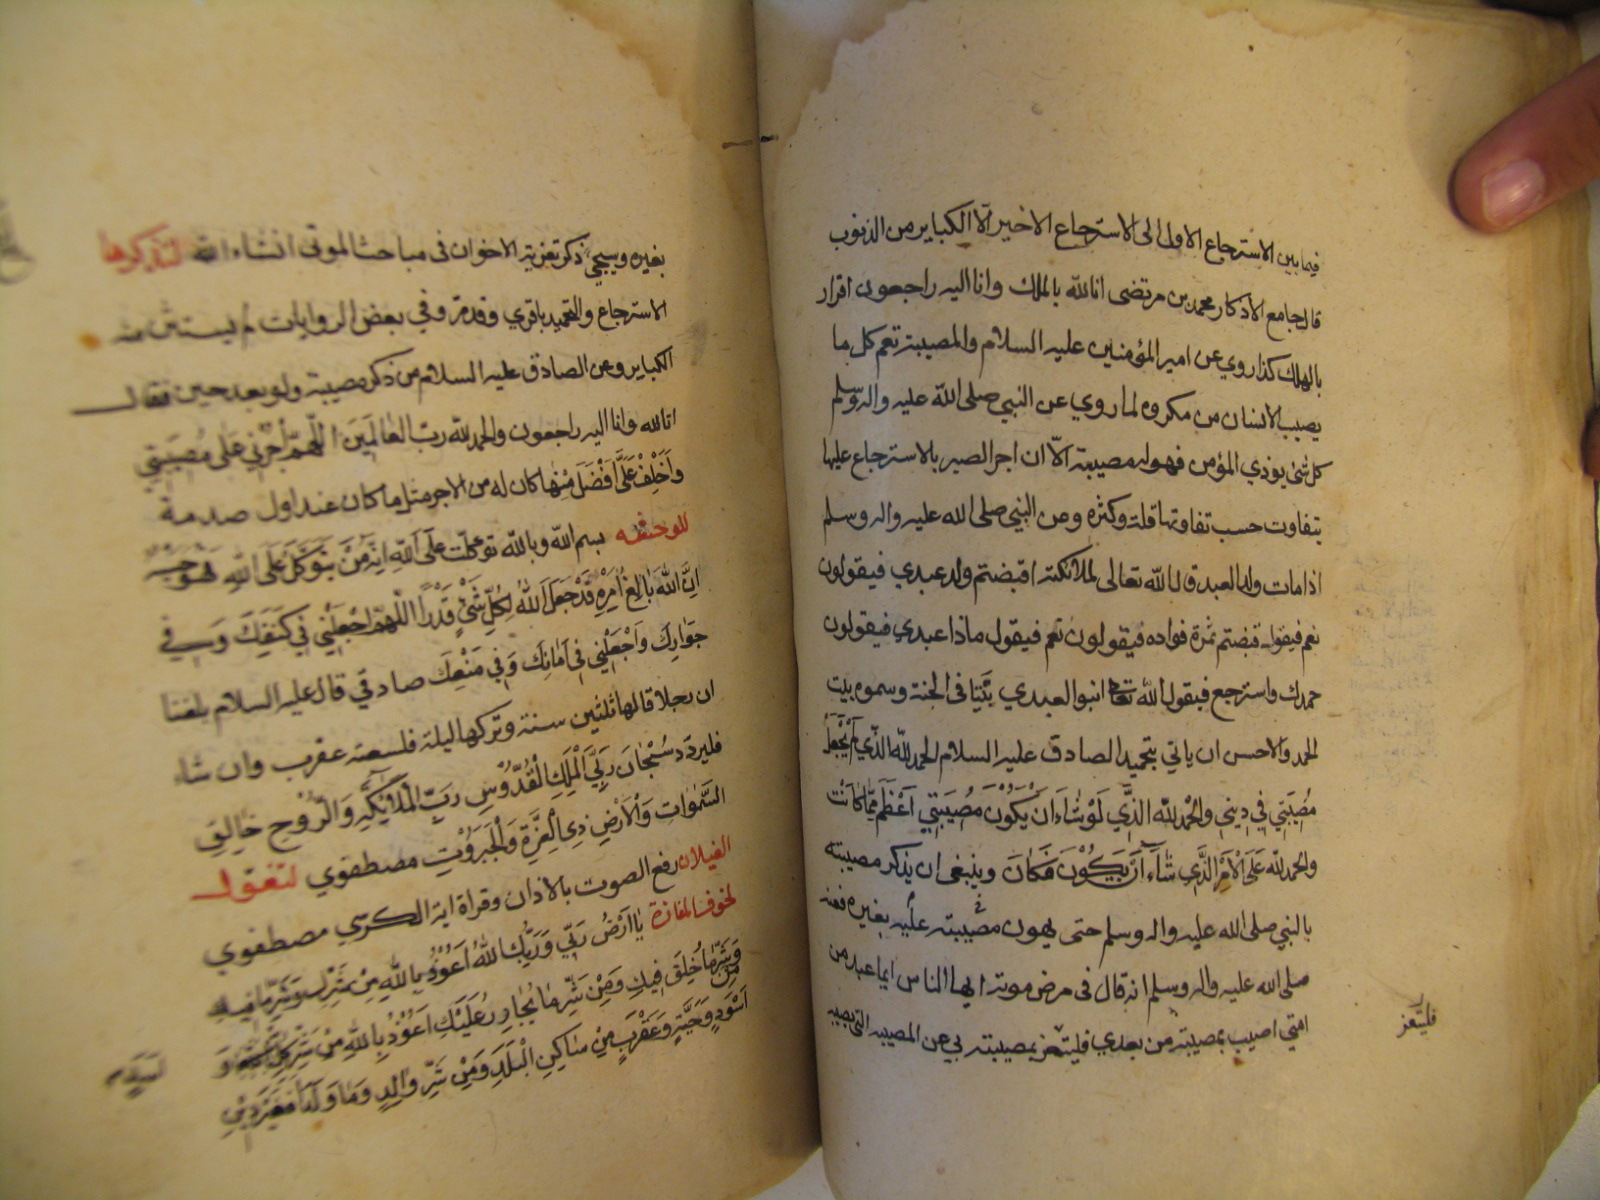 فيما بين الاسترجاع الاول الى الاسترجاع الاخير الا الكباير من الذنوب
قال جامع الاذكار محمد بن مرتضى انا لله بالملك وانا اليه راجعون اقرار
بالهلك كذا روي عن امير المؤمنين عليه السلام والمصيبة تعم كل ما
يصيب الانسان من مكروه لما روي عن النبي صلى الله عليه واله وسلم
كل شئ يوذي المؤمن فهو له مصيبة الّا ان اجر الصبر بالاسترجاع عليها
يتفاوت حسب تفاوتها قلة وكثرة وعن النبي صلى الله عليه واله وسلم
اذا مات ولد العبد قال الله تعالى لملائكته اقبضتم ولد عبدي فيقولون
نعم فيقول قبضتم ثمرة فواده فيقولون نعم فيقول ماذا عبدي فيقولون
حمدك واسترجع فيقول الله تعالى ابنوا لعبدي بَيْتا فى الجنة وسموه بيت
الحمد والاحسن ان ياتي بتحميد الصادق عليه السلام الحمد لله الَّذي لَمْ يَجْعَلْ
مُصيبَتي في ديني والحْمد للهِ الذَّي لَوْ شاءَ اَنْ يَكُوْنَ مُصيبَتِي اَعْظَمَ مِمّا كانَتْ
والحمد لله عَلَى الْاَمْرِ الَّذي شاءَ اَنْ يَكُوْنَ فَكانَ وينبغى ان يذكر مصيبته
بالنبي صلى الله عليه واله وسلم حتى يهون مصيبته عليه بغيره فعنه
صلى الله عليه واله وسلم انه قال فى مرض موته ايها الناس ايما عبد من
امتي اصيب بمصيبة من بعدي فليتعز بمصيبته بي عن المصيبة التي تصيبه
فليتعز
بغيره وسيجئ ذكر تعزية الاخوان فى مباحث الموتى انشاء الله لتذكرها
الاسترجاع والتحميد باقري وقد مرّ وفي بعض الروايات لم يستثن منه
الكباير وعن الصادق عليه السلام من ذكر مصيبة ولو بعد حين فقال
انا لله وانا اليه راجعون والحمد لله ربّ العالَمينَ اللّهمّ أْجُرْني عَلى مُصيبَتي
وَاَخْلِفْ عَلَيَّ اَفْضَلَ مِنْها كان له من الاجر مثل ما كان عند اول صدمة
للوحشة بسم الله وبالله توكّلت عَلَى اللهِ اِنَّهُ مَنْ يَتَوَكَّلْ عَلَى اللهِ فَهُوَ حَسْبُهُ
اِنَّ اللهَ بالِغُ اَمْرِهِ قَدْ جَعَلَ اللهُ لِكُلِّ شَئٍ قَدْراً اللّهُمَّ اجْعَلْني في كَنَفِكَ وَفي
جَوارِكَ وَاجْعَلْني في اَمانِكَ وَفي مَنْعِكَ صادقي قال عليه السلام بلغنا
ان رجلا قالها ثلثين سنة وتركها ليلة فلسعته عقرب وان شاء
فليردد سُبْحانَ رَبِّيَ الْمَلِكِ الْقُدُّوْسِ رَبِّ الْمَلائِكَةِ وَالرُّوْحِ خالِقِ
السَّمواتِ وَالْاَرْضِ ذِي الْعِزَّةِ وَالْجَبَرُوْتِ مصطفوي لتغول
الغيلان رفع الصوت بالاذان وقراة اية الكرسي مصطفوي
لخوف المفازة يا اَرْضُ رَبّي وَرَبُّكِ اللهُ اَعُوْذُ بِاللهِ مِنْ شَرِّكِ وَشَرِّ ما فيكِ
وَشَرِّ ما خُلِقَ فيكِ وَمِنْ شَرِّ ما يُحاذِرُ عَلَيْكِ اَعُوْذُ بِاللهِ مِنْ شَرِّ كُلِّ
مِنْ
اَسْوَدٍ وَحَيَّةٍ وَعَقْرَبٍ مِنْ ساكِنِ الْبَلَدِ وَمِنْ شَرِّ والِدٍ وَما وَلَدَ اَفَغَيْرَ دِيْنِ